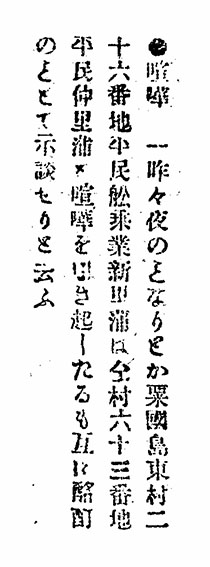 ●喧嘩　一昨々夜のとなりとか粟國島東村二
十六番地平民舩乗業新里蒲は仝村六十三番地
平民仲里蒲と喧嘩を引き起したるも互に酩酊
のとゝて示談せりと云ふ